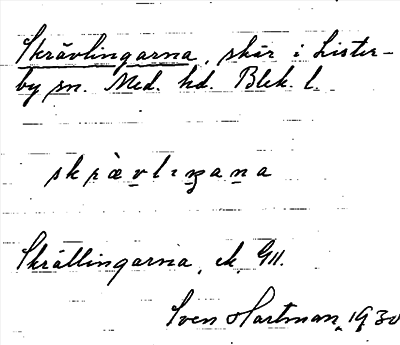 Skrävlingarna, skär i Lister-
by sn. Med. hd. Blek. l.
skrävlıŋana
Skrällingarna, ek. G11.
Sven Hartman, 1930